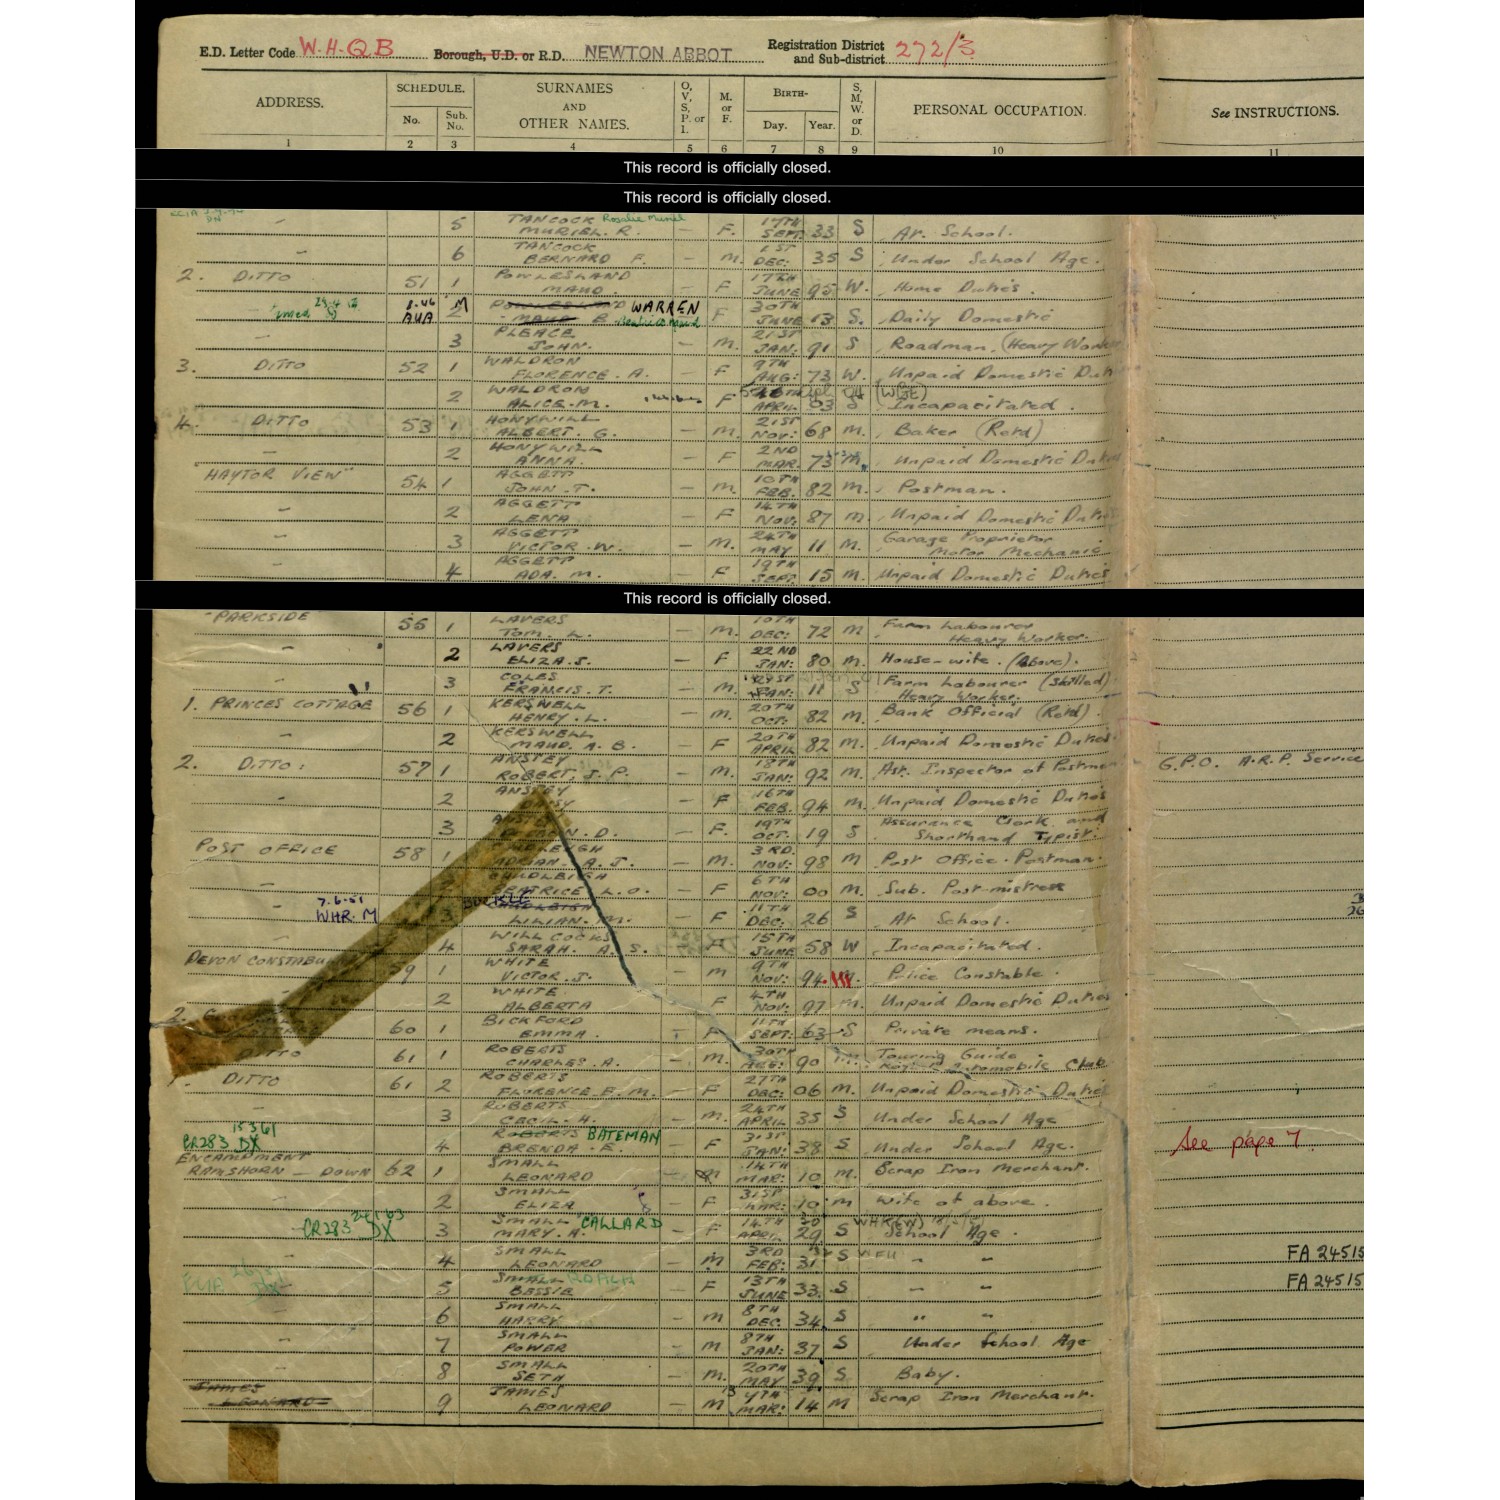 E.D. Letter Code W.H.QB Borough, U.D. or R.D. NEWTON ABBOT Registration District and Sub-district 272/3
ADDRESS. SCHEDULE. No. Sub. No. SURNAMES AND OTHER NAMES. O, V, S, P. or I. M. or F. BIRTH- Day. Year. S, M, W. or D. PERSONAL OCCUPATION. See INSTRUCTIONS.
1 2 3 4 5 6 7 8 9 10 11
This record is officially closed.
This record is officially closed.
" 5 TANCOCK MURIEL. R. Rosalie Muriel – F. 17TH SEPT: 33 S At. School.
" 6 TANCOCK BERNARD F. – M. 1ST DEC: 35 S Under School Age.
2. DITTO 51 1 POWLESLAND MAUD. – F 17TH JUNE 95 W. Home Duties.
8.46 AUA M 2 WARREN E F 30TH JUNE 13 S. Daily Domestic
" 3 PLEACE JOHN. – M. 21ST JAN. 91 S Roadman. (Heavy Worker
3. DITTO 52 1 WALDRON FLORENCE. A. – F 9TH AUG: 73 W. Unpaid Domestic Duties
2 WALDRON ALICE. M. F APRIL 03 S Incapacitated.
4. DITTO 53 1 HONYWILL ALBERT. G. – M. 21ST NOV: 68 M. Baker (Retd)
" 2 HONYWILL ANNA. – F 2ND MAR. 73 M. Unpaid Domestic Duties
"HAYTOR VIEW" 54 1 AGGETT JOHN. T. – M. 10TH FEB. 82 M. Postman.
" 2 AGGETT LENA – F 14TH NOV: 87 M. Unpaid Domestic Duties
" 3 AGGETT VICTOR. W. – M. 24TH MAY 11 M. Garage Proprietor Motor Mechanic
" 4 AGGETT ADA. M. – F 19TH SEPT. 15 M. Unpaid Domestic Duties
This record is officially closed.
"PARKSIDE 55 1 LAVERS TOM. L. – M. 10TH DEC: 72 M Farm Labourer Heavy Worker.
" 2 LAVERS ELIZA. S. – F 22ND JAN: 80 M. House-wife. (Above).
3 COLES FRANCIS. T. – M. JAN: 11 S Farm Labourer (Skilled) Heavy Worker.
1. PRINCES COTTAGE 56 1 KERSWELL HENRY. L. – M. 20TH OCT: 82 M. Bank Official (Retd).
" 2 KERSWELL MAUD. A. B. – F 20TH APRIL 82 M. Unpaid Domestic Duties.
2. DITTO: 57 1 ANSTEY ROBERT. J. P. – M. 18TH JAN: 92 M. Ast. Inspector of Postmen G.P.O. A.R.P. Service
" 2 ANSTEY – F 16TH FEB. 94 M. Unpaid Domestic Duties
3 D. – F. 19TH OCT. 19 S Assurance Clerk and Shorthand Typist.
POST OFFICE 58 1 A. J. – M. 3RD. NOV: 98 M Post Office. Postman.
" 2 BEATRICE L. O. – F 6TH NOV: 00 M. Sub. Post-mistress
7.6.51 WHR. M 3 LILIAN. M. – F 11TH DEC: 26 S At School.
" 4 WILLCOCKS SARAH. A. S. – F 15TH JUNE 58 W Incapacitated.
DEVON CONSTABU 59 1 WHITE VICTOR. J. – M 9TH NOV: 94 M. Police Constable.
" 2 WHITE ALBERTA F 4TH NOV: 97 M. Unpaid Domestic Duties
2. 60 1 BICKFORD EMMA. – F 11TH SEPT: 63 S Private means.
DITTO 61 1 ROBERTS CHARLES. A. – M. 30TH 90 M. Touring Guide Automobile Club
1. DITTO 61 2 ROBERTS FLORENCE. E. M. – F 27TH DEC: 06 M. Unpaid Domestic Duties
" 3 ROBERTS CECIL. H. – M. 24TH APRIL 35 S Under School Age
15361 CR283 DX 4 ROBERTS BATEMAN BRENDA. E. – F 31ST JAN: 38 S Under School Age. See page 7
ENCAMPMENT RAMSHORN – DOWN 62 1 SMALL LEONARD M 14TH MAR: 10 M. Scrap Iron Merchant.
" 2 SMALL ELIZA – F 31ST MAR: 10 M Wife of above.
CR283 DX 3 SMALL CALLARD MARY. A. – F 14TH APRIL 29 S School Age.
" 4 SMALL LEONARD – M 3RD FEB: 31 S " " FA 24515
5 SMALL ROACH BESSIE – F 13TH JUNE 33 S " " FA 24515
" 6 SMALL HARRY – M 8TH DEC. 34 S " "
" 7 SMALL POWER – M 8TH JAN: 37 S Under School Age
" 8 SMALL SETH – M. 20TH MAY 39 S Baby.
JAMES LEONARD 9 JAMES LEONARD – M MAR: 14 M Scrap Iron Merchant.